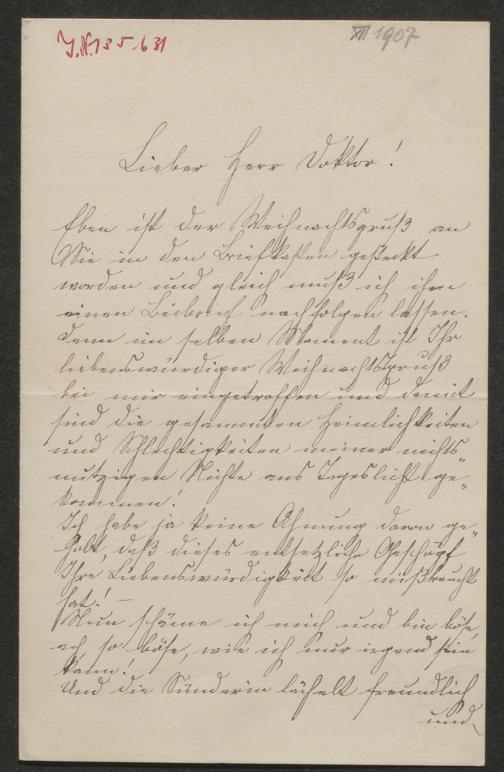 J.N. 135.631
XII 1907
Lieber Herr Doktor!
Eben ist der Weihnachtsgruß an
Sie in den Briefkasten gesteckt
worden und gleich muß ich ihm
einen Leibbrief nachfolgen lassen.
Denn im selben Moment ist Ihr
liebenswürdiger Weihnachtsgruß
bei mir eingetroffen und damit
sind die gesammten Heimlichkeiten
und Schlechtigkeiten meiner nichts-
nutzigen Nichte ans Tageslicht ge-
kommen!
Ich habe ja keine Ahnung davon ge-
habt, daß dieses entsetzliche Geschöpf
Ihre Liebenswürdigkeit so mißbraucht
hat! –
Nun schäme ich mich und bin böse,
ach so böse, wie ich nur irgend sein
kann!
Und die Sünderin lächelt freundlich
und